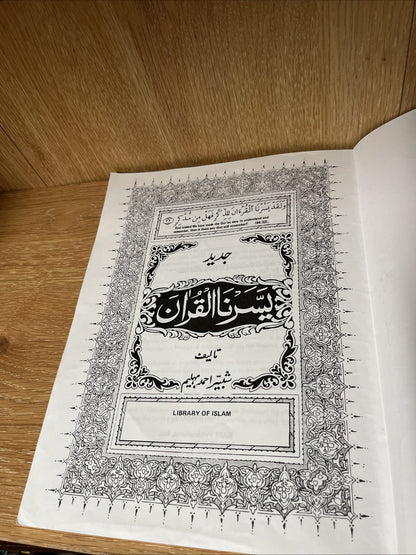 وَلَقَدْ يَسَّرْنَا الْقُرْءَانَ لِلذِّكْرِ فَهَلْ مِن مُّدَّكِرٍ
And indeed We have made the Qur'an easy to understand and
remember, then is there any that will remember? (54:22)
جدید
یَسَّرْنَا الْقُرْآنَ
تالیف
شبیر احمد مہلیم
LIBRARY OF ISLAM